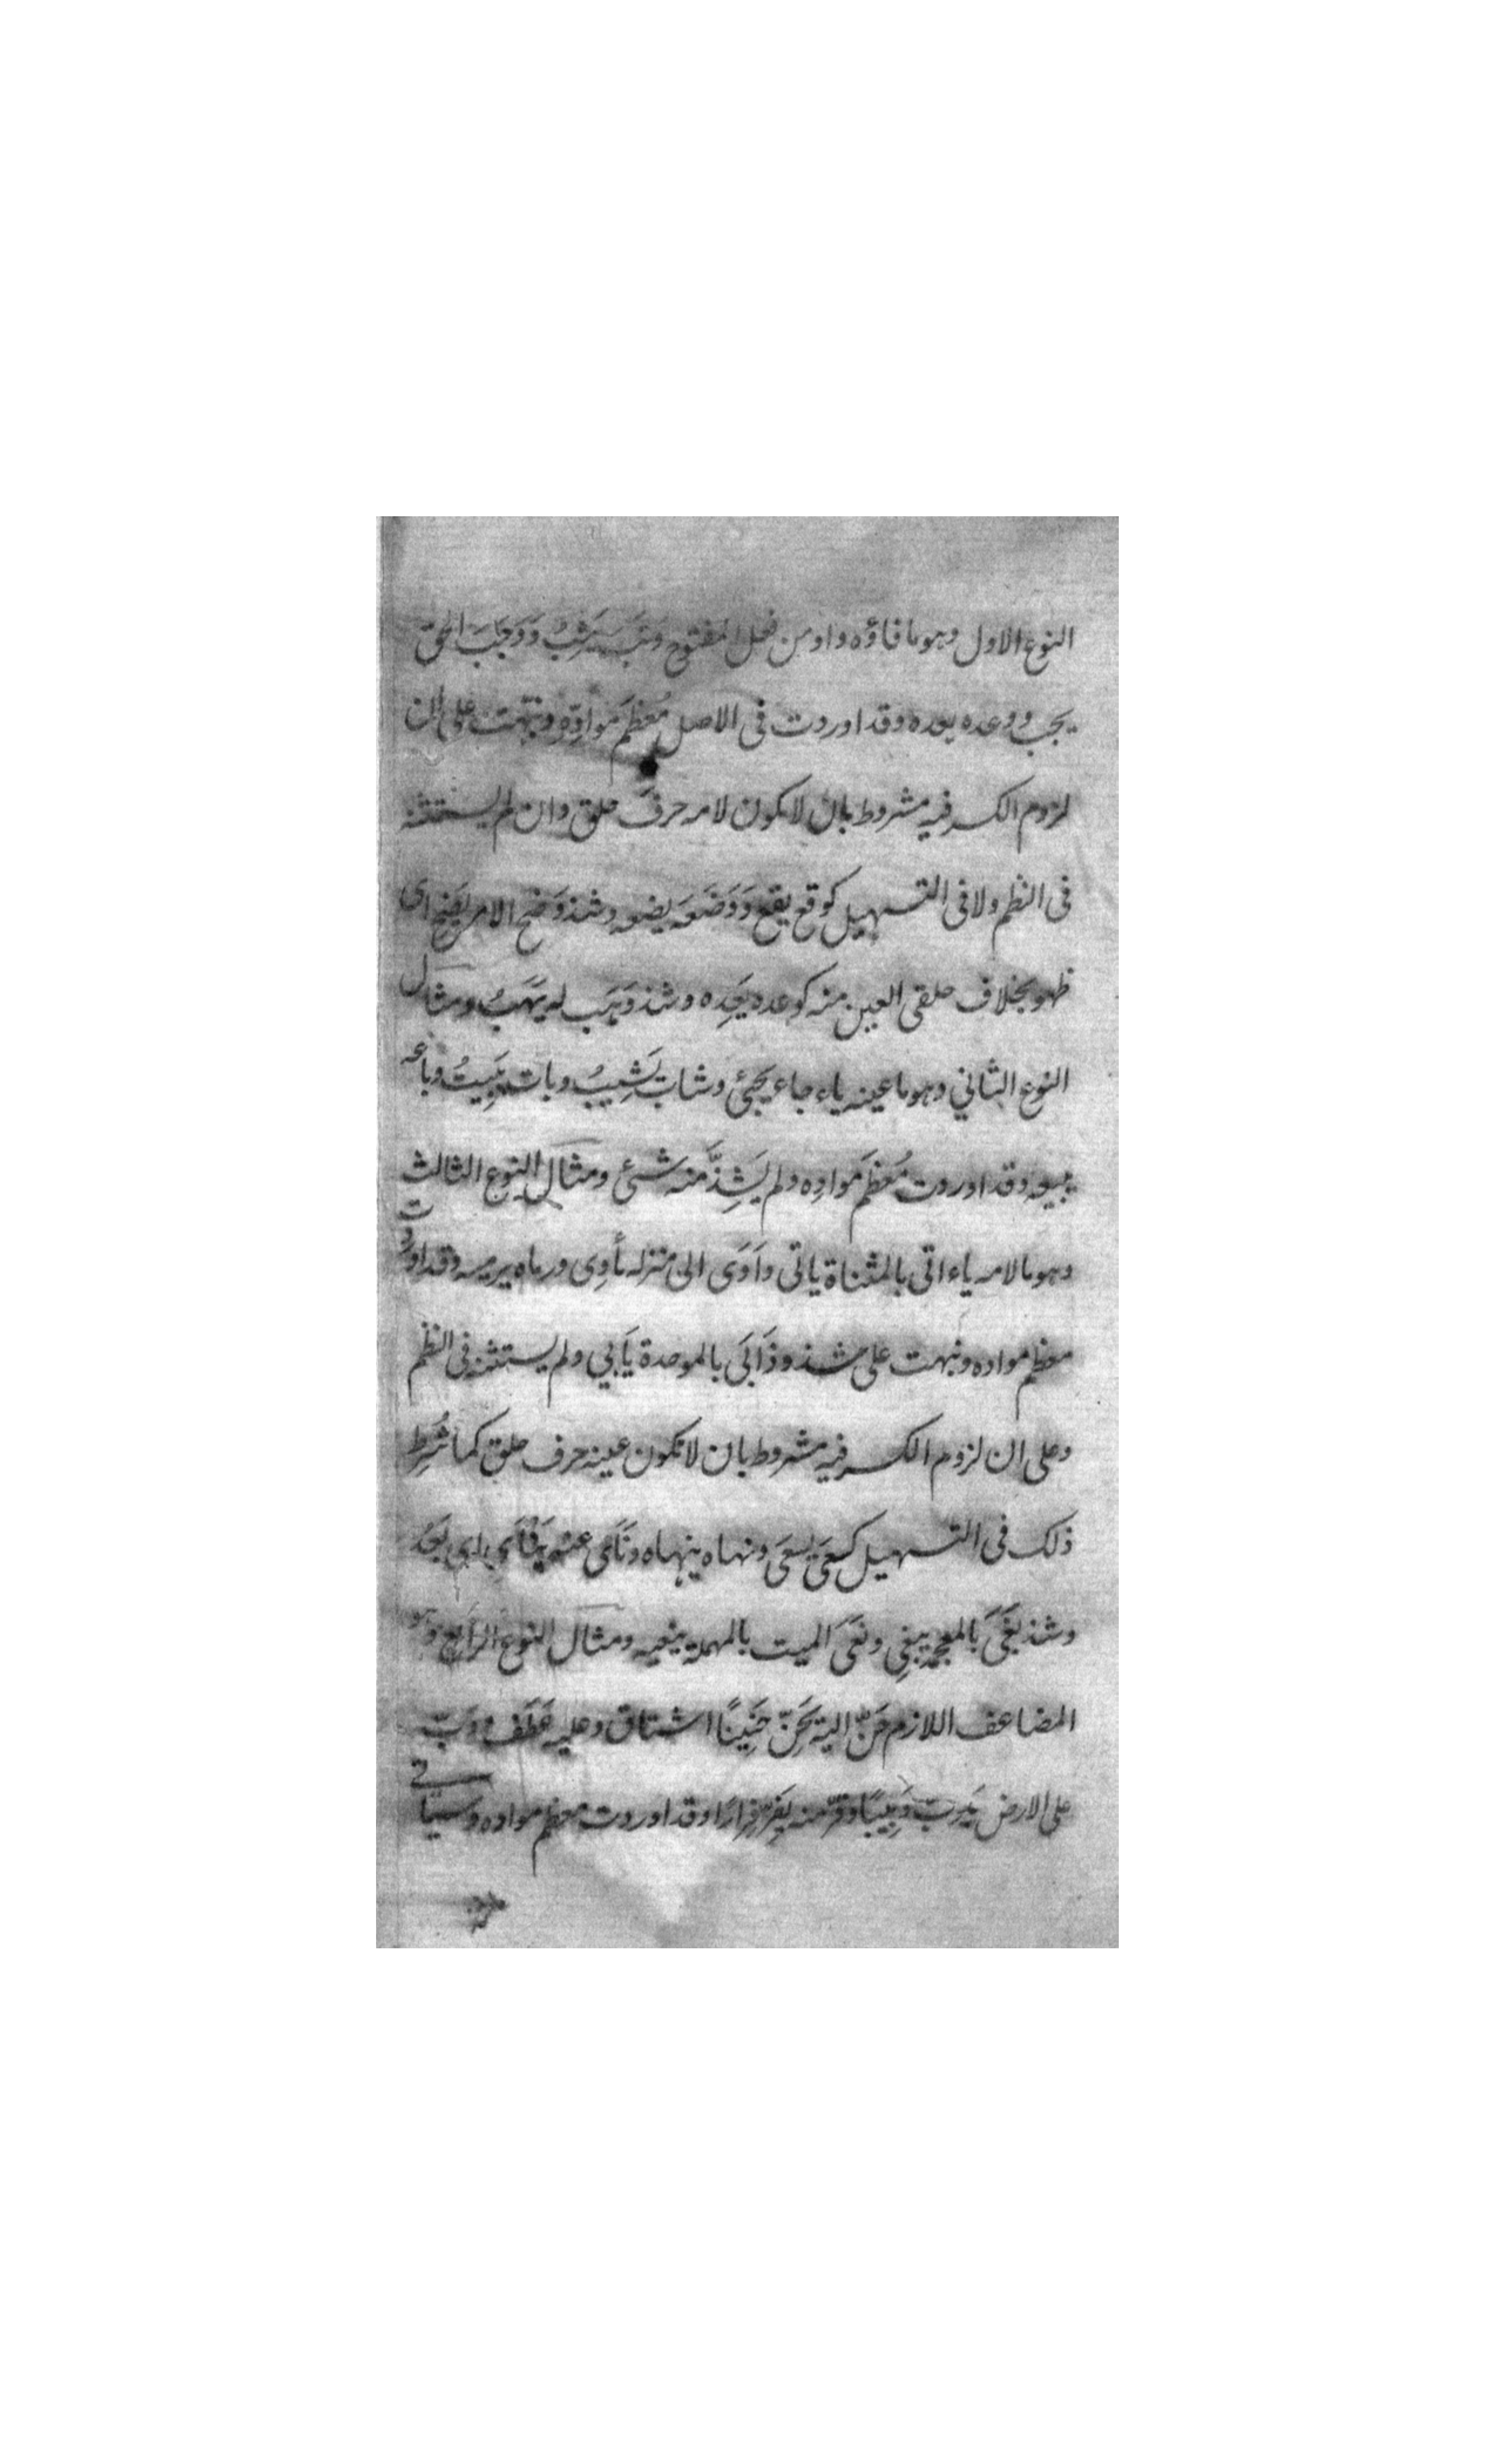 النوع الاول وهو ما فاؤه واو من فعل المفتوح وَثَبَ يَثِبُ وَوَجَبَ الحق
يجب ووعده يعده وقد اوردت فى الاصل مُعْظَمَ موادِّهِ ونبّهت على ان
لزوم الكسر فيه مشروط بان لا يكون لامه حرفَ حلق وان لم يستثنه
فى النظم ولا فى التسهيل كوقع يقع وَوَضَعَه يضعه وشذ وَضَح الامر يَضِح اى
ظهر بخلاف حلقى العين منه كوعده يَعِده وشذ وَهَب له يَهَبُ ومثال
النوع الثاني وهو ما عينه ياء جاء يجئ وشابَ يَشِيبُ وبات يَبِيتُ وباعه
يبيعه وقد اوردت مُعْظَمَ موادِه ولم يَشِذَّ منه شئ ومثال النوع الثالث
وهو ما لامه ياء اتى بالمثناة ياتى وَاَوَى الى منزله يأوِى ورماه يرميه وقد اوردت
معظم مواده ونبهت على شذوذ اَبَى بالموحدة يَأبي ولم يستثنه فى النظم
وعلى ان لزوم الكسر فيه مشروط بان لا تكون عينه حرف حلق كما شُرِط
ذلك فى التسهيل كسَعَى يسعَى ونهاه ينهاه ونَأَى عنه يَنْأَى اى بَعُد
وشذ بَغَى بالمعجمة يبغِي ونَعَى الميت بالمهملة ينعيه ومثال النوع الرابع وهو
المضاعف اللازم حَنّ اليه يَحِنّ حَنِينًا اشتاق وعليه عَطَفَ ودَبّ
على الارض يَدِبّ دَبِيبًا وفرّ منه يَفِرّ فِرارًا وقد اوردت معظم مواده وسياتى